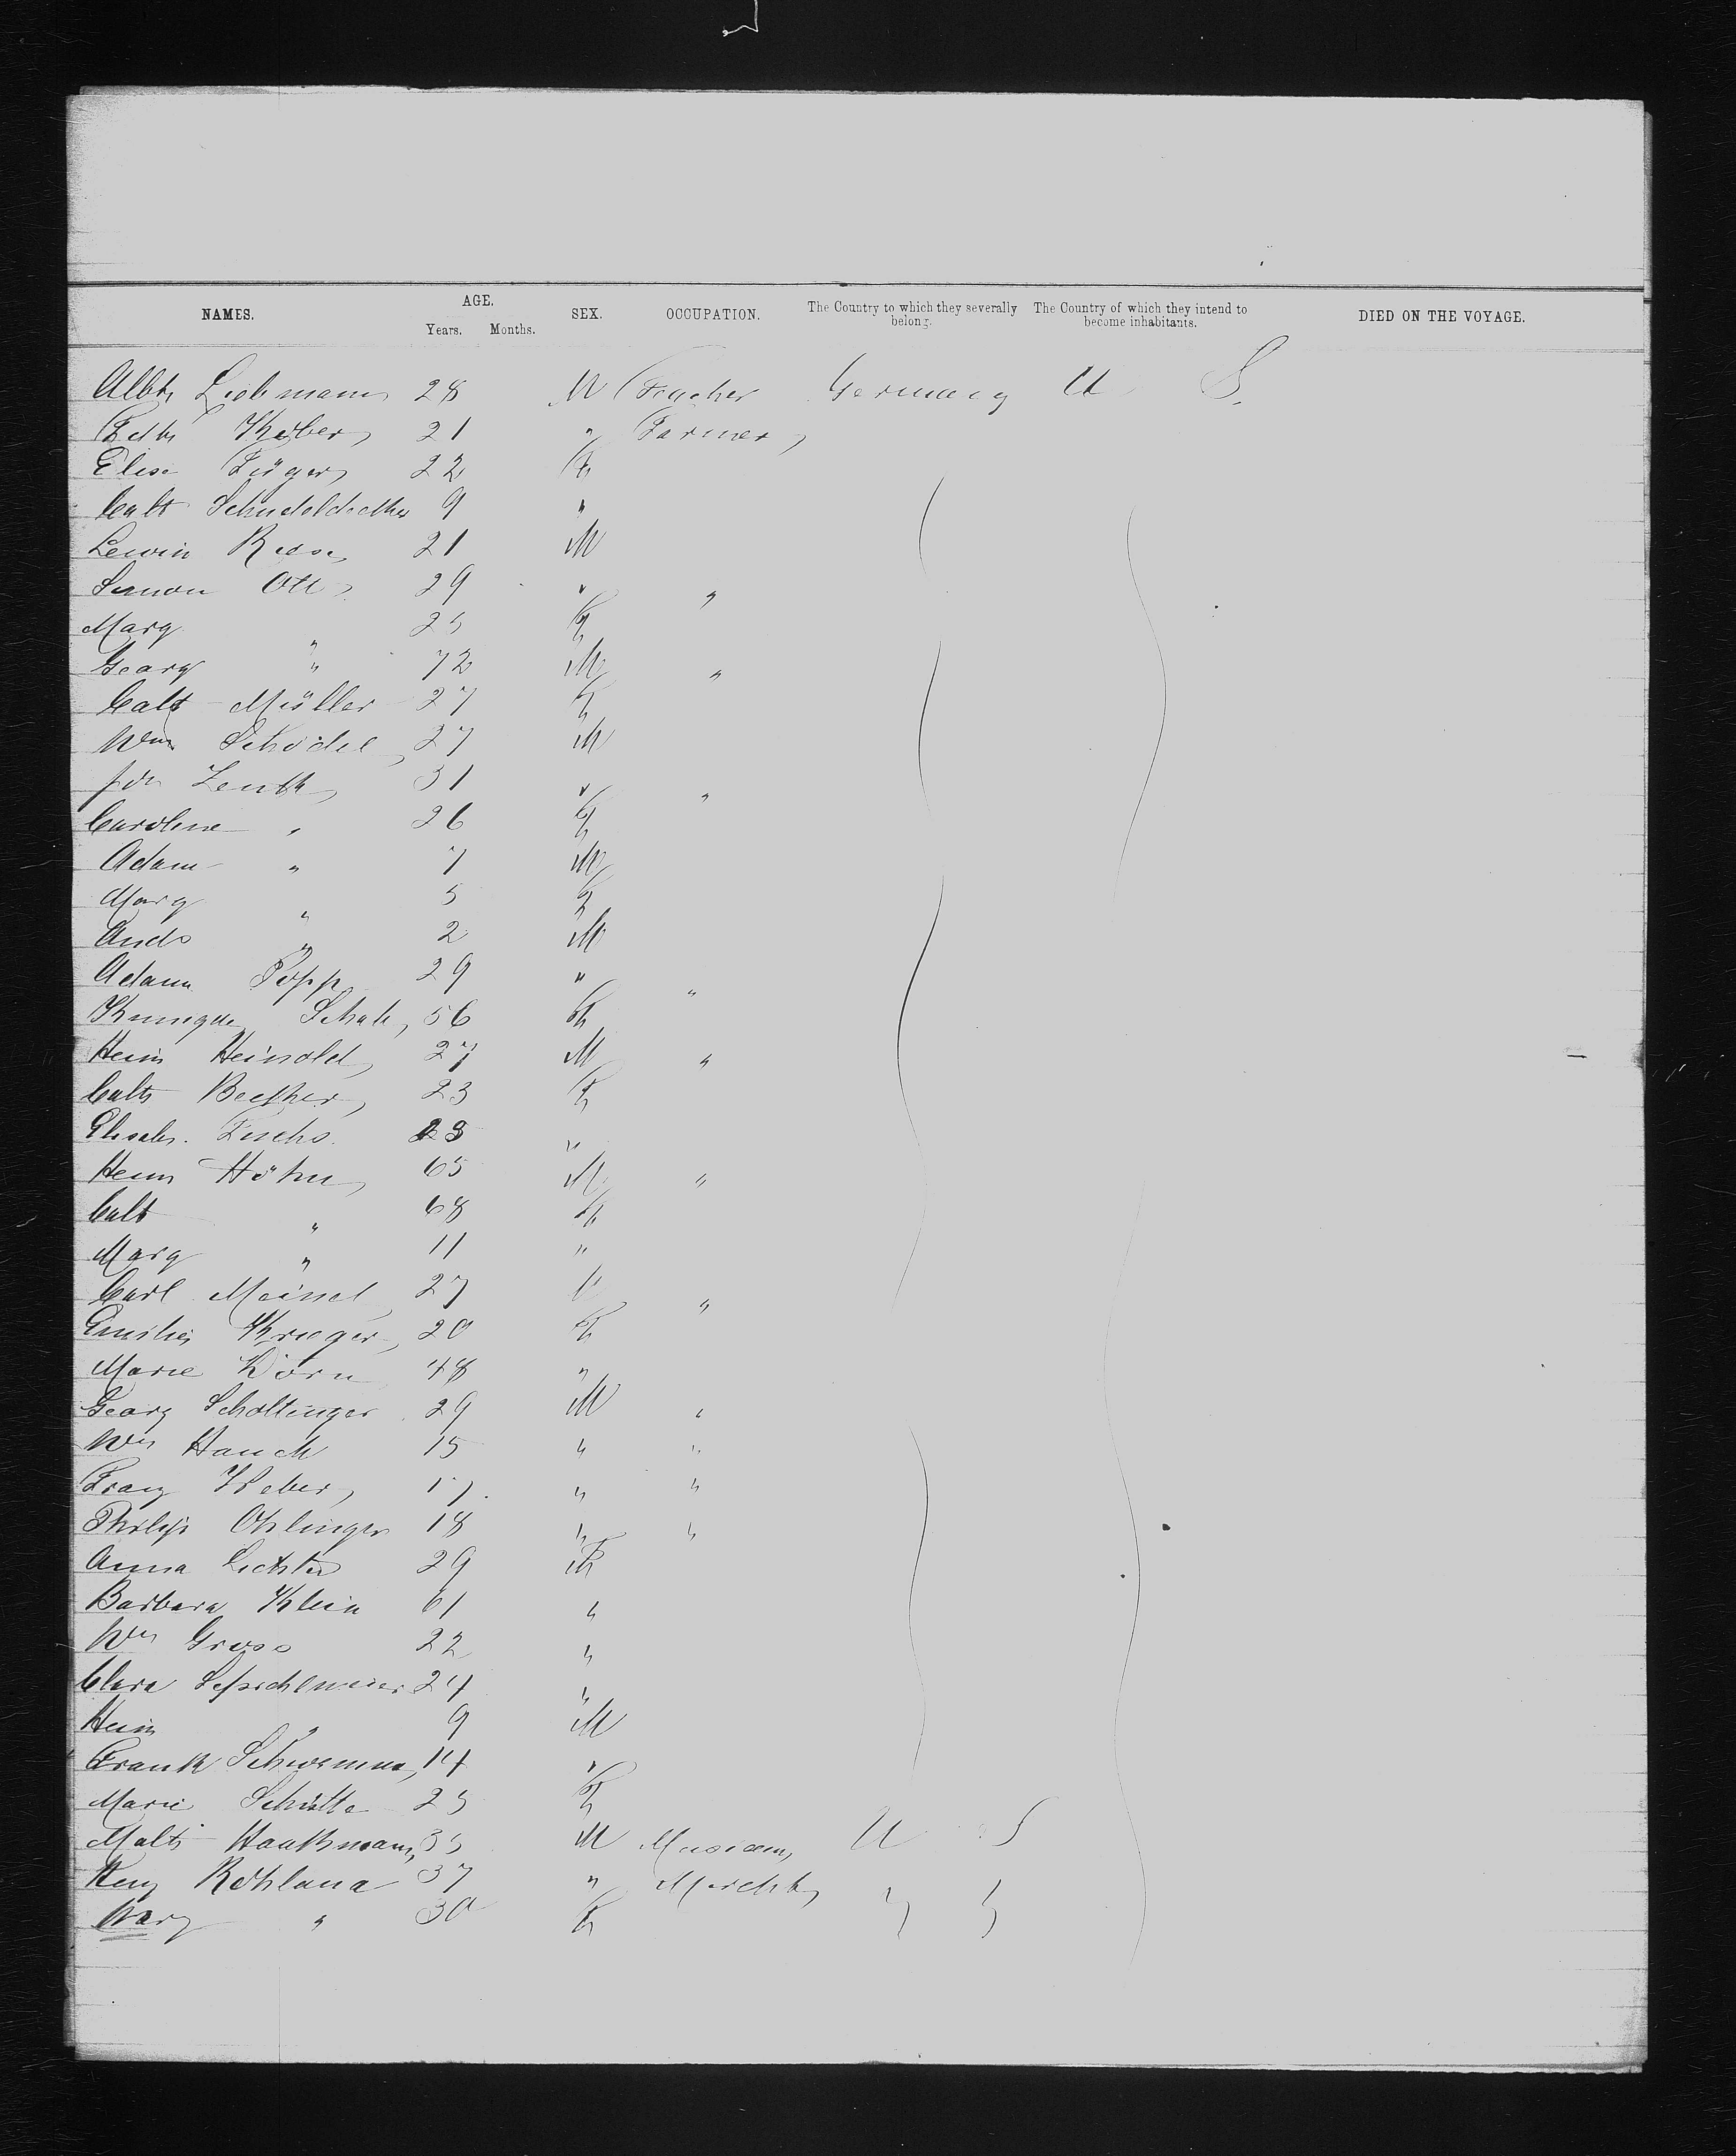 NAMES. AGE. Years. Months. SEX. OCCUPATION. The Country to which they severally belong. The Country of which they intend to become inhabitants. DIED ON THE VOYAGE.
Albt Liebmann 28 M Teacher Germany U S.
21 " Farmer
Elise Füger 22 F
Cath 9 "
Lewin Rose 21 M
Simon Ott 29 " "
Marg " 25 F
Georg " 72 M "
Cath Müller 27 F
Wm Schödel 27 M
Joh Zenth 31 " "
Caroline " 26 F
Adam " 7 M
Marg " 5 F
Andr " 2 M
Adam Popp 29 " "
56 F
Heinr Heinold 27 M "
Cath Becker 23 F
Elisab. Fuchs 23 "
Heinr Höhn 65 M "
Cath " 68 F
Marg " 11 "
Carl Meinel 27 M "
Emilie Krieger 20 F
Marie Dörn 48 "
Georg Schottinger 29 M "
Wm Hauck 15 " "
Franz Weber 17 " "
Philip Ohlinger 18 " "
Anna 29 F
Barbara Klein 61 "
Wm Gross 22 "
Clara 24 "
Heinr " 9 M
Frank Schwemme 14 "
Marie Schütte 25 F
35 M Musician U S
Henry 37 " Mercht " "
Marg " 30 F